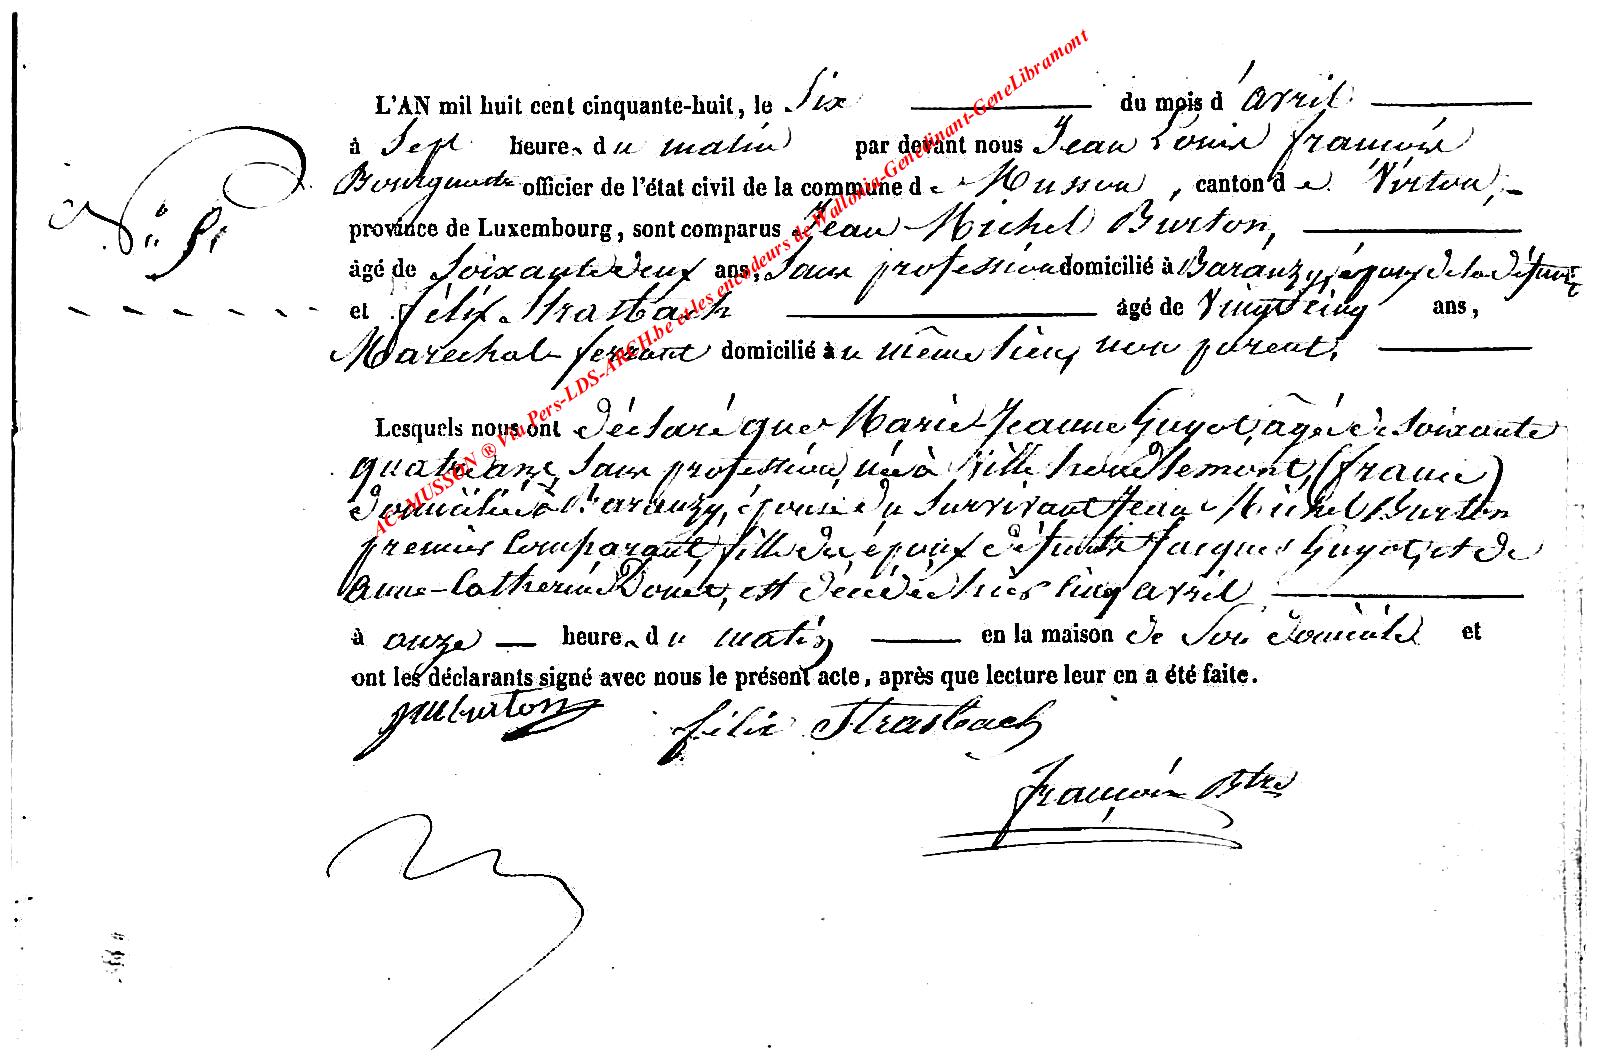 L'AN mil huit cent cinquante-huit, le Six du mois d'avril
à Sept heures du matin par devant nous Jean Louis françois
officier de l'état civil de la commune de Musson, canton de Virton,
N° 5
province de Luxembourg, sont comparus Jean Michel Burton,
âgé de Soixante deux ans, Sans profession domicilié à Baranzy, époux de la défunte
et félix Strasbach âgé de Vingt cinq ans,
Marechal ferrant domicilié au même lieu, non parent.
Lesquels nous ont déclaré que Marie Jeanne Guyot, âgée de soixante
quatre ans, Sans profession, née à Ville houdlemont, (france)
domiciliée à Baranzy, épouse du Survivant Jean Michel Burton
premier Comparant, fille des époux défunts Jacques Guyot, et de
anne-Catherine, est décédée hier Cinq avril
à onze heures du matin en la maison de Son domicile et
ont les déclarants signé avec nous le présent acte, après que lecture leur en a été faite.
JM burton félix Strasbach
françois Btre
AC-MUSSON ® Via Pers-LDS-ARCH.be et les encodeurs de Wallonia-Genedinant-GeneLibramont